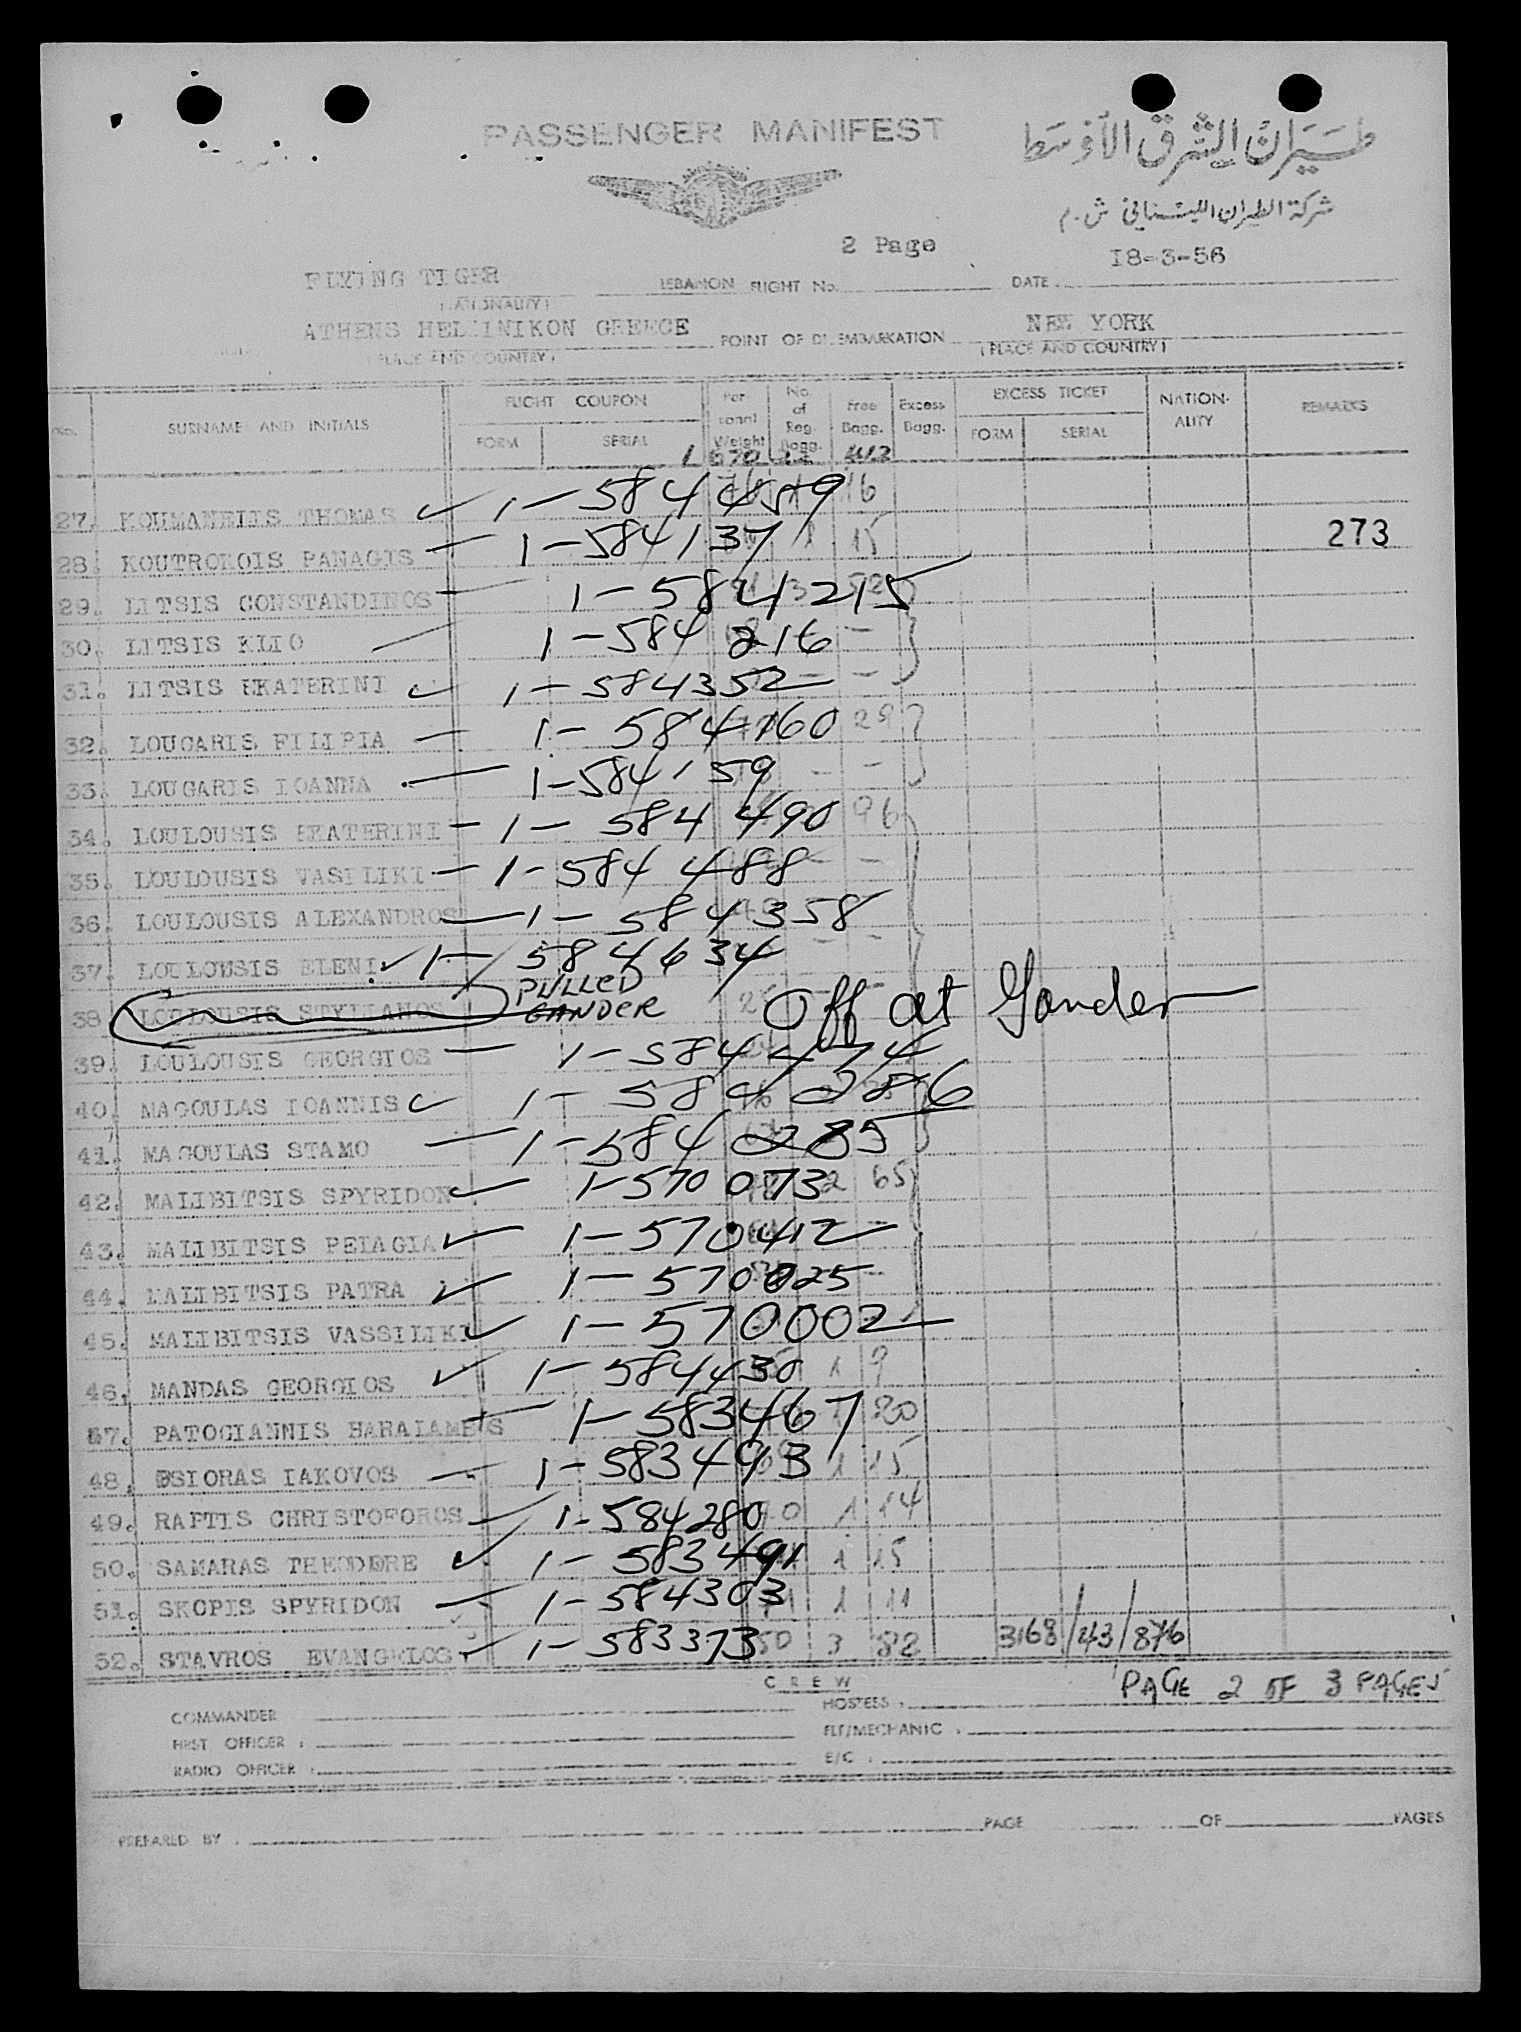 PASSENGER MANIFEST
طيران الشرق الأوسط
شركة الطيران اللبناني ش.م
2 Page
I8-3-56
FLYING TIGER
LEBANON FLIGHT No.
DATE
(NATIONALITY)
ATHENS HELLINIKON GREECE
POINT OF DISEMBARKATION
NEW YORK
(PLACE AND COUNTRY)
(PLACE AND COUNTRY)
No. SURNAME AND INITIALS FLIGHT COUPON FORM SERIAL Personnal Weight No. of Reg. Bagg. Free Bagg. Excess Bagg. EXCESS TICKET FORM SERIAL NATION-ALITY REMARKS
27. KOUMANELIS THOMAS 1-584459 16
28. KOUTROKOIS PANAGIS 1-584137 1 15 273
29. LITSIS CONSTANDINOS 1-584215
30. LITSIS KLIO 1-584216 -
31. LITSIS EKATERINI 1-584352 -
32. LOUGARIS FILIPIA 1-584160 29
33. LOUGARIS IOANNA 1-584159 - -
34. LOULOUSIS EKATERINI 1-584490 96
35. LOULOUSIS VASILIKI 1-584488 - -
36. LOULOUSIS ALEXANDROS 1-584358
37. LOULOUSIS ELENI 1-584634 - -
38. LOULOUSIS STYLIANOS PULLED GANDER Off at Gander
39. LOULOUSIS GEORGIOS 1-584474
40. MAGOULAS IOANNIS 1-584286
41. MAGOULAS STAMO 1-584285
42. MALIBITSIS SPYRIDON 1-570073 2 65
43. MALIBITSIS PEIAGIA 1-570412
44. MALIBITSIS PATRA 1-570025 -
45. MALIBITSIS VASSILIKI 1-570002
46. MANDAS GEORGIOS 1-584430 1 9
57. PATOGIANNIS HARALAMBIS 1-583467 20
48. PSIORAS IAKOVOS 1-583493 1 15
49. RAPTIS CHRISTOFOROS 1-584280 1 14
50. SAMARAS THEODORE 1-583491 1 15
51. SKOPIS SPYRIDON 1-584303 1 11
52. STAVROS EVANGELOS 1-583373 50 3 82 3168/43/876
CREW
PAGE 2 OF 3 PAGES
COMMANDER
HOSTESS :
FIRST OFFICER :
FLT/MECHANIC :
RADIO OFFICER :
E/C :
PREPARED BY : PAGE OF PAGES